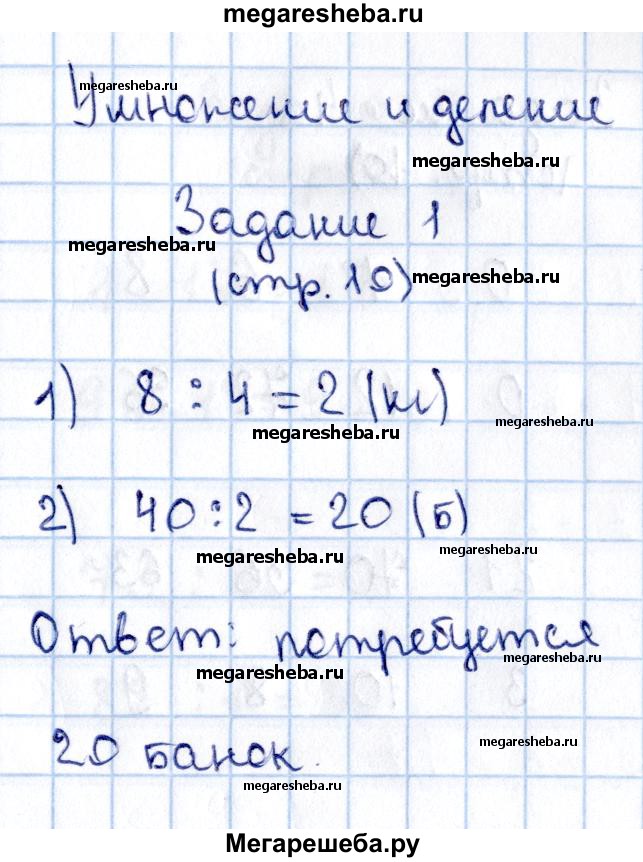 megaresheba.ru
megaresheba.ru
Умножение и деление
megaresheba.ru
Задание 1
megaresheba.ru
(стр. 10)
megaresheba.ru
1) 8 : 4 = 2 (кг)
megaresheba.ru
megaresheba.ru
2) 40 : 2 = 20 (б)
megaresheba.ru
megaresheba.ru
Ответ: потребуется
megaresheba.ru
megaresheba.ru
20 банок.
megaresheba.ru
megaresheba.ru
Мегарешеба.ру